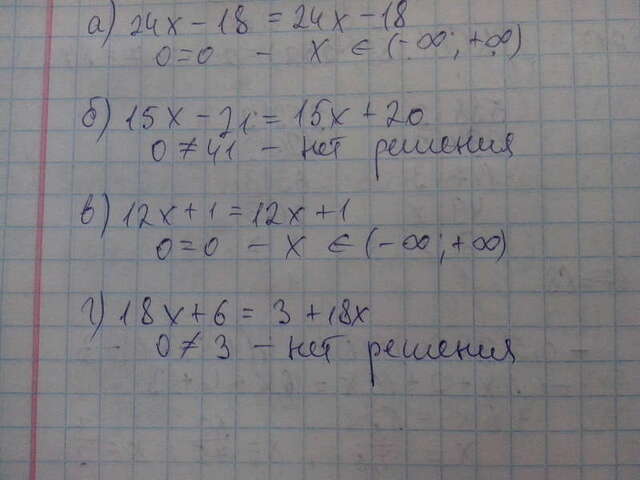 а) 24x - 18 = 24x - 18
0 = 0 - x ∈ (-∞; +∞)
б) 15x - 21 = 15x + 20
0 ≠ 41 - нет решения
в) 12x + 1 = 12x + 1
0 = 0 - x ∈ (-∞; +∞)
г) 18x + 6 = 3 + 18x
0 ≠ 3 - нет решения